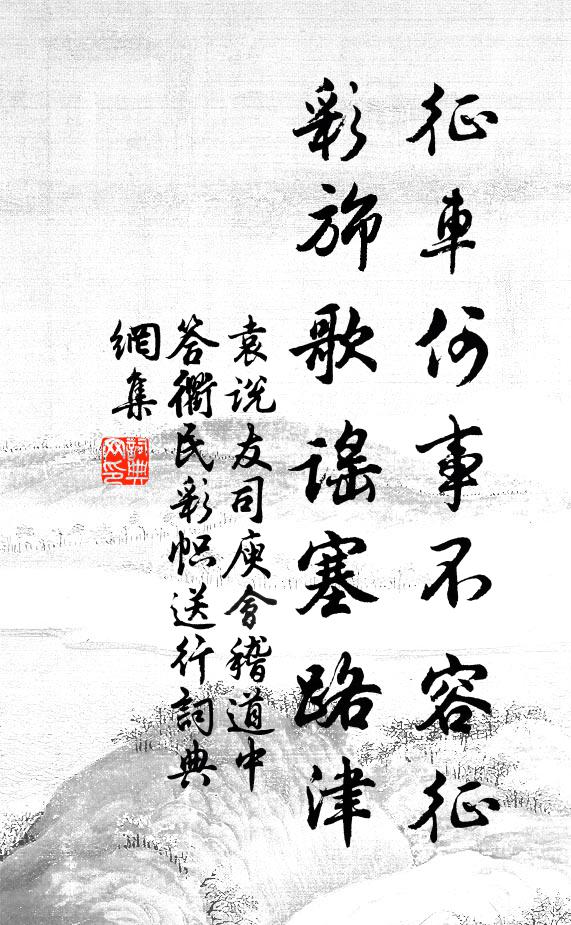 征車何事不容征
彩斾歌謠塞路津
袁說友司庾會稽道中
答衢民彩幟送行詞典
網集
詞典
网印